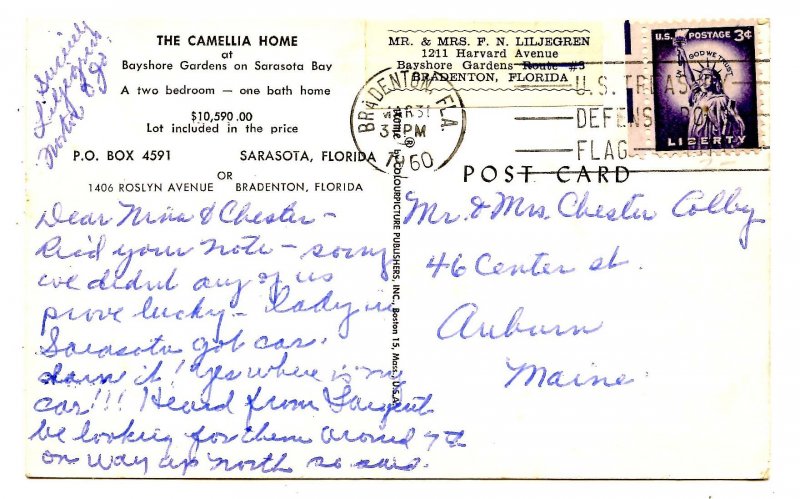 THE CAMELLIA HOME
at
Bayshore Gardens on Sarasota Bay
A two bedroom — one bath home
$10,590.00
Lot included in the price
P.O. BOX 4591 SARASOTA, FLORIDA
OR
1406 ROSLYN AVENUE BRADENTON, FLORIDA
Sincerely
Liljegrens
& Jo
MR. & MRS. F. N. LILJEGREN
1211 Harvard Avenue
Bayshore Gardens Route #3
BRADENTON, FLORIDA
BRADENTON, FLA.
MAR 31
PM
1960
U.S. TREASURY
DEFENSE BOND
FLAG
U.S. POSTAGE 3¢
IN GOD WE TRUST
LIBERTY
POST CARD
by COLOURPICTURE PUBLISHERS, INC., Boston 15, Mass., U.S.A.
Dear Nina & Chester –
Rec'd your note – sorry
we didnt any of us
prove lucky – lady in
Sarasota got car.
darn it! Yes where is my
car!!! Heard from Sargent
be looking for them around 7th
on way up north so said.
Mr. & Mrs. Chester Colby
46 Center st.
Auburn
Maine